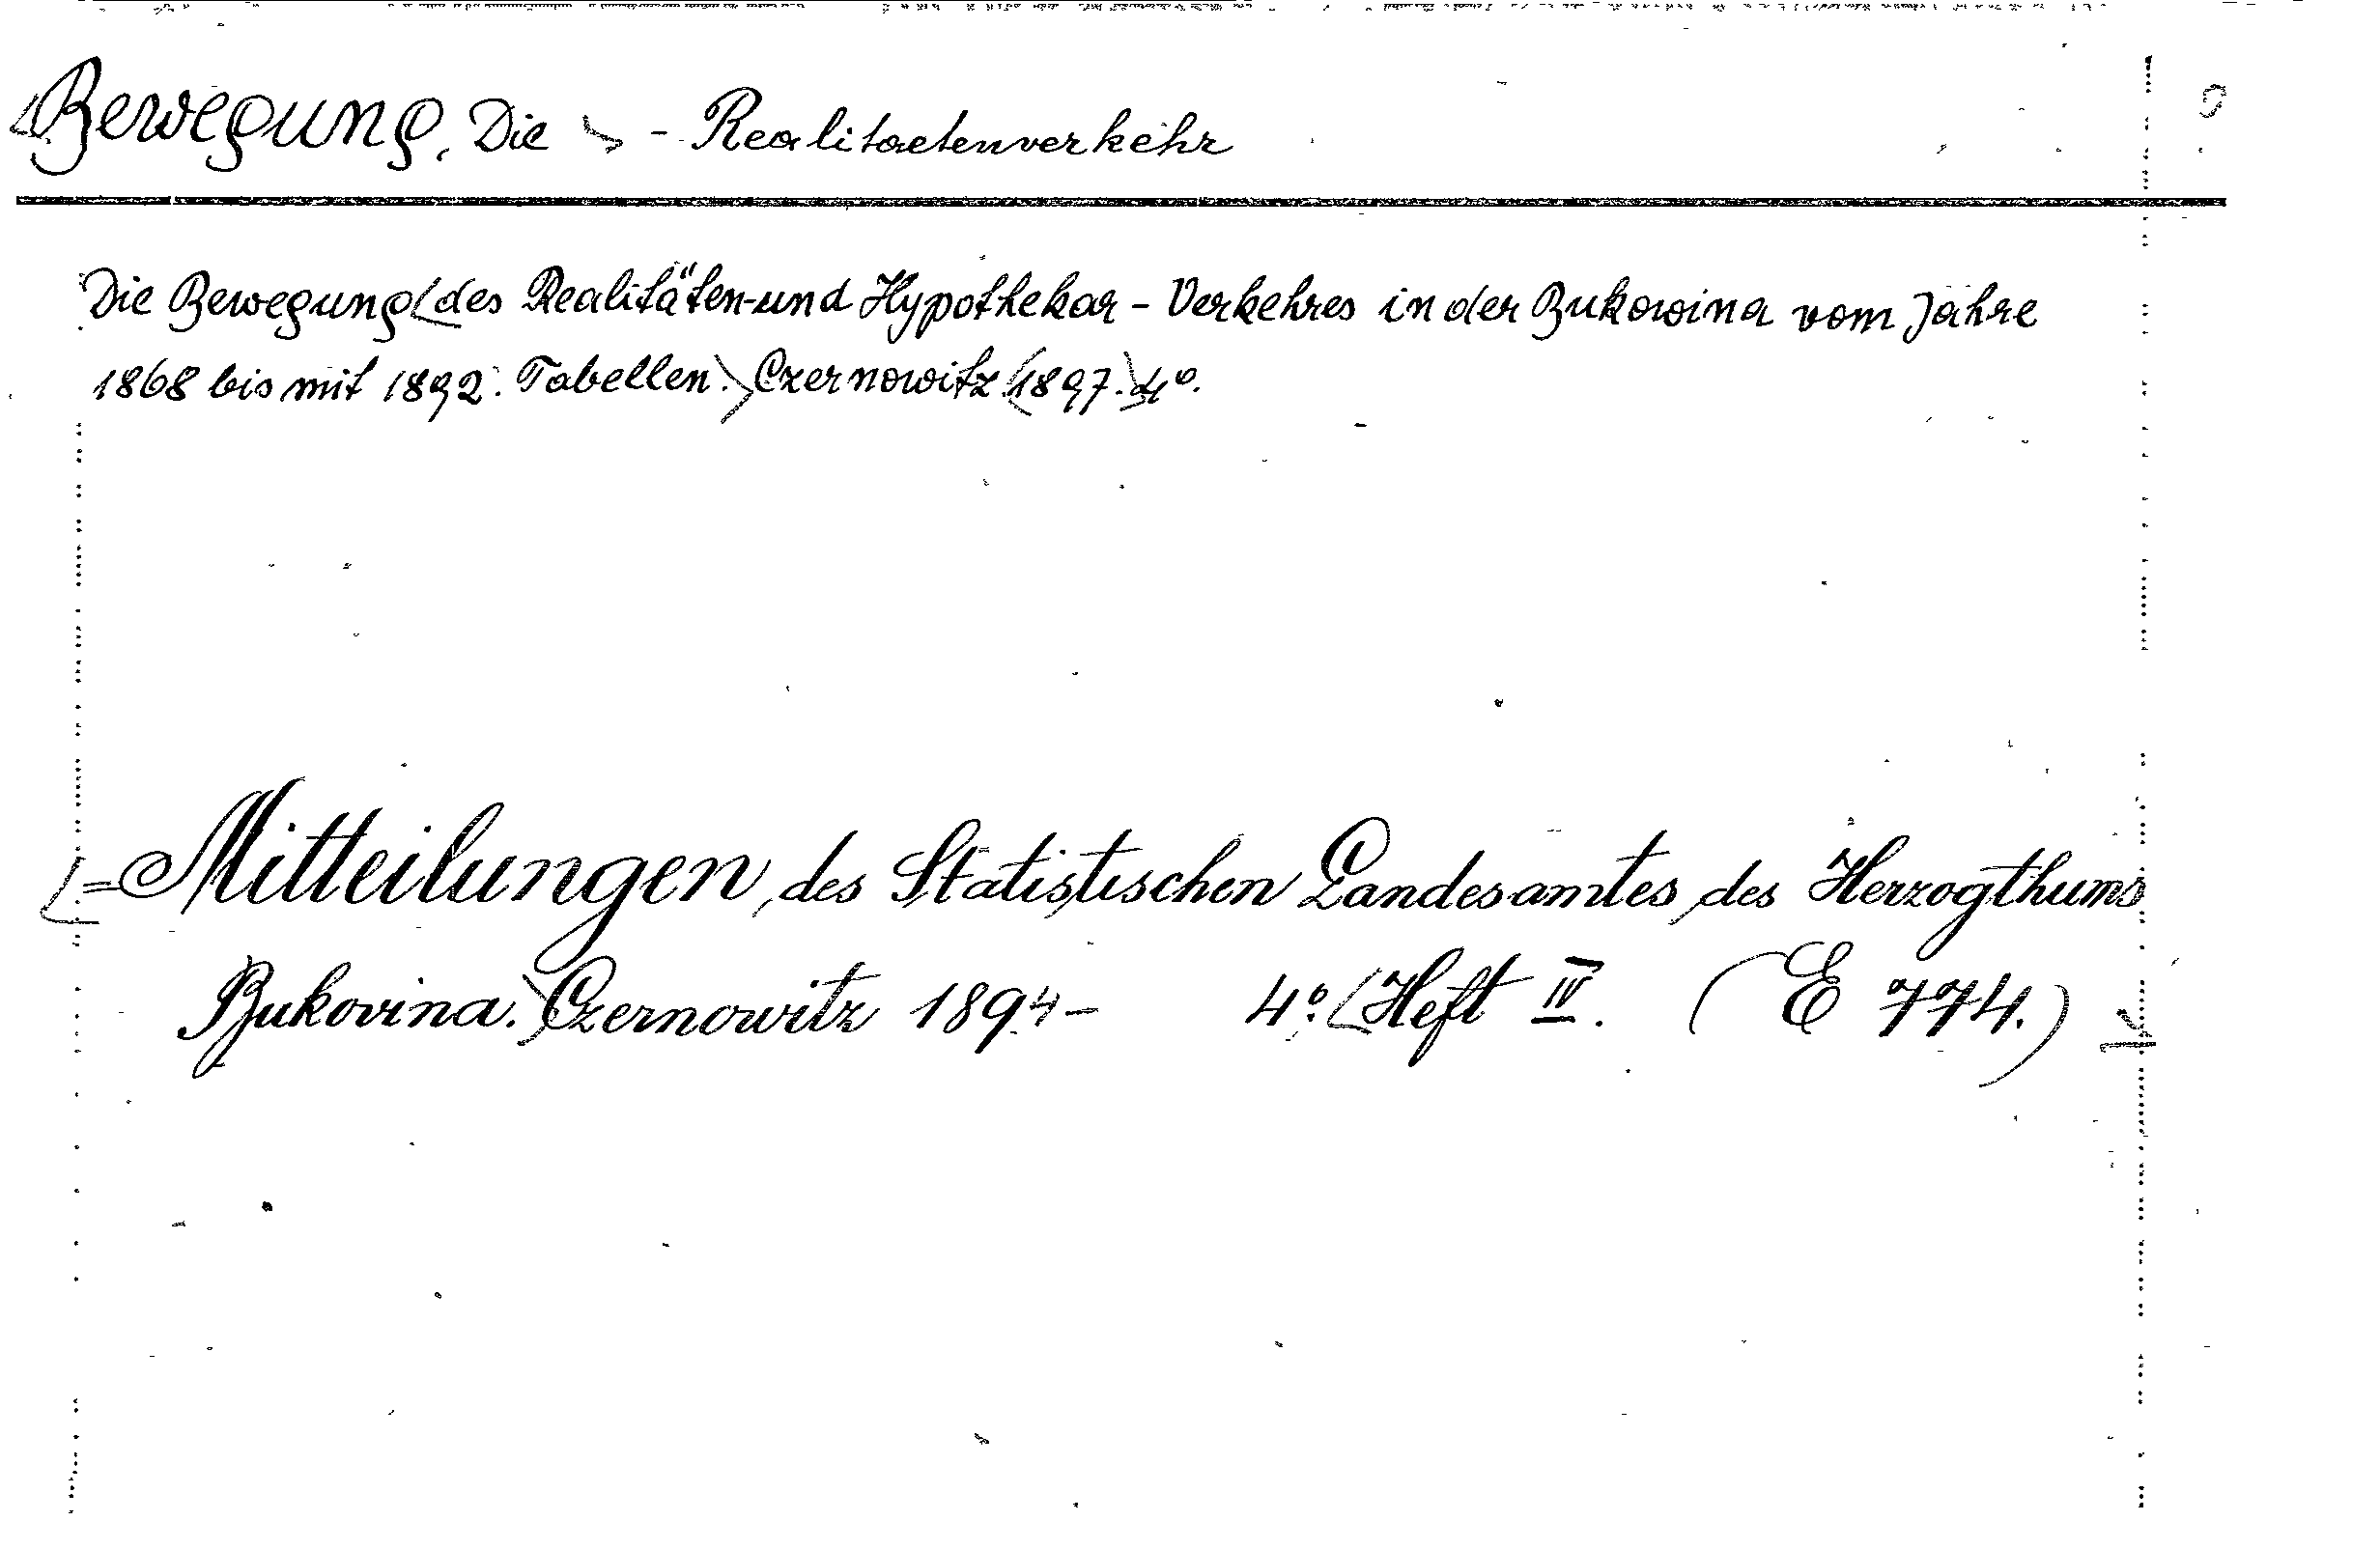 Bewegung, Die - Realitaetenverkehr
Die Bewegung des Realitäten- und Hypothekar - Verkehres in der Bukowina vom Jahre
1868 bis mit 1892. Tabellen. Czernowitz 1897. 4°.
= Mitteilungen des Statistischen Landesamtes des Herzogthums
Bukovina. Czernowitz 1894- 4°. Heft IV. (E 774.)